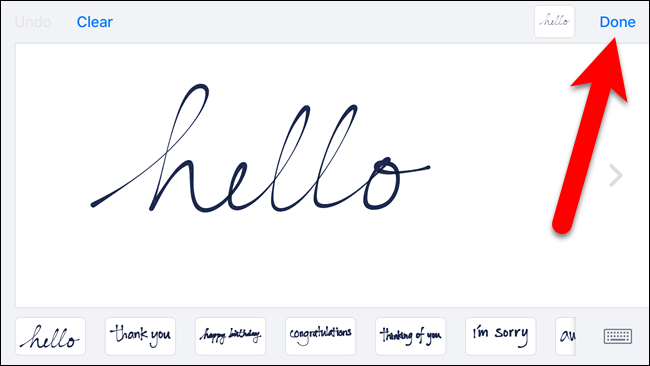 Undo Clear hello Done
hello
hello thank you happy birthday. congratulations thinking of you i'm sorry